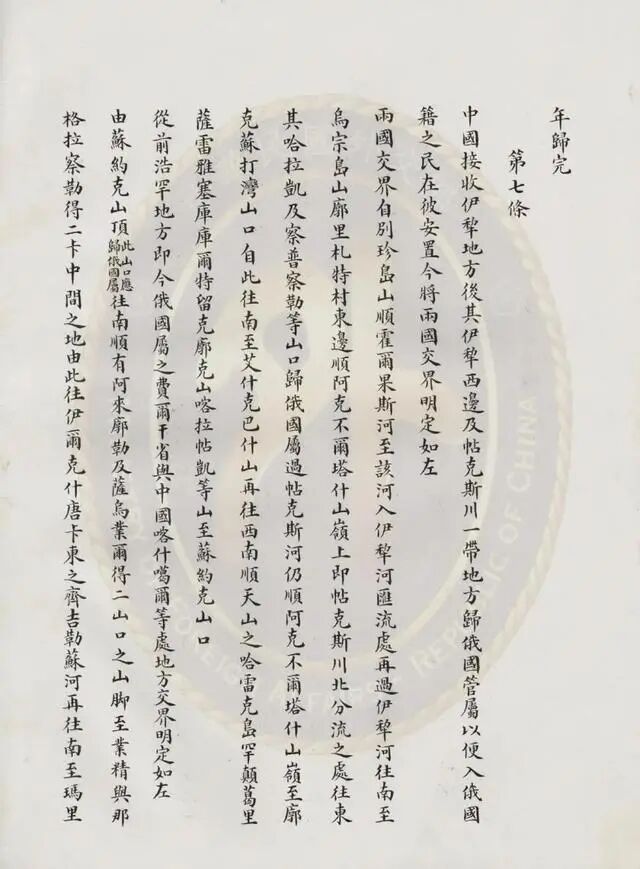 年歸完
第七條
中國接收伊犂地方後其伊犂西邊及帖克斯川一帶地方歸俄國管屬以便入俄國
籍之民在彼安置今將兩國交界明定如左
兩國交界自別珍島山順霍爾果斯河至該河入伊犂河匯流處再過伊犂河往南至
烏宗島山廓里札特村東邊順阿克不爾塔什山嶺上即帖克斯川北分流之處往東
其哈拉凱及察普察勒等山口歸俄國屬過帖克斯河仍順阿克不爾塔什山嶺至廓
克蘇打灣山口自此往南至艾什克巴什山再往西南順天山之哈雷克島罕顛葛里
薩雷雅塞庫庫爾特留克廓克山喀拉帖凱等山至蘇約克山口
從前浩罕地方即今俄國屬之費爾干省與中國喀什噶爾等處地方交界明定如左
由蘇約克山頂此山口應歸俄國屬往南順有阿來廓勒及薩烏業爾得二山口之山脚至業精與那
格拉察勒得二卡中間之地由此往伊爾克什唐卡東之齊吉勒蘇河再往南至瑪里
OF FOREIGN AFFAIRS REPUBLIC OF CHINA